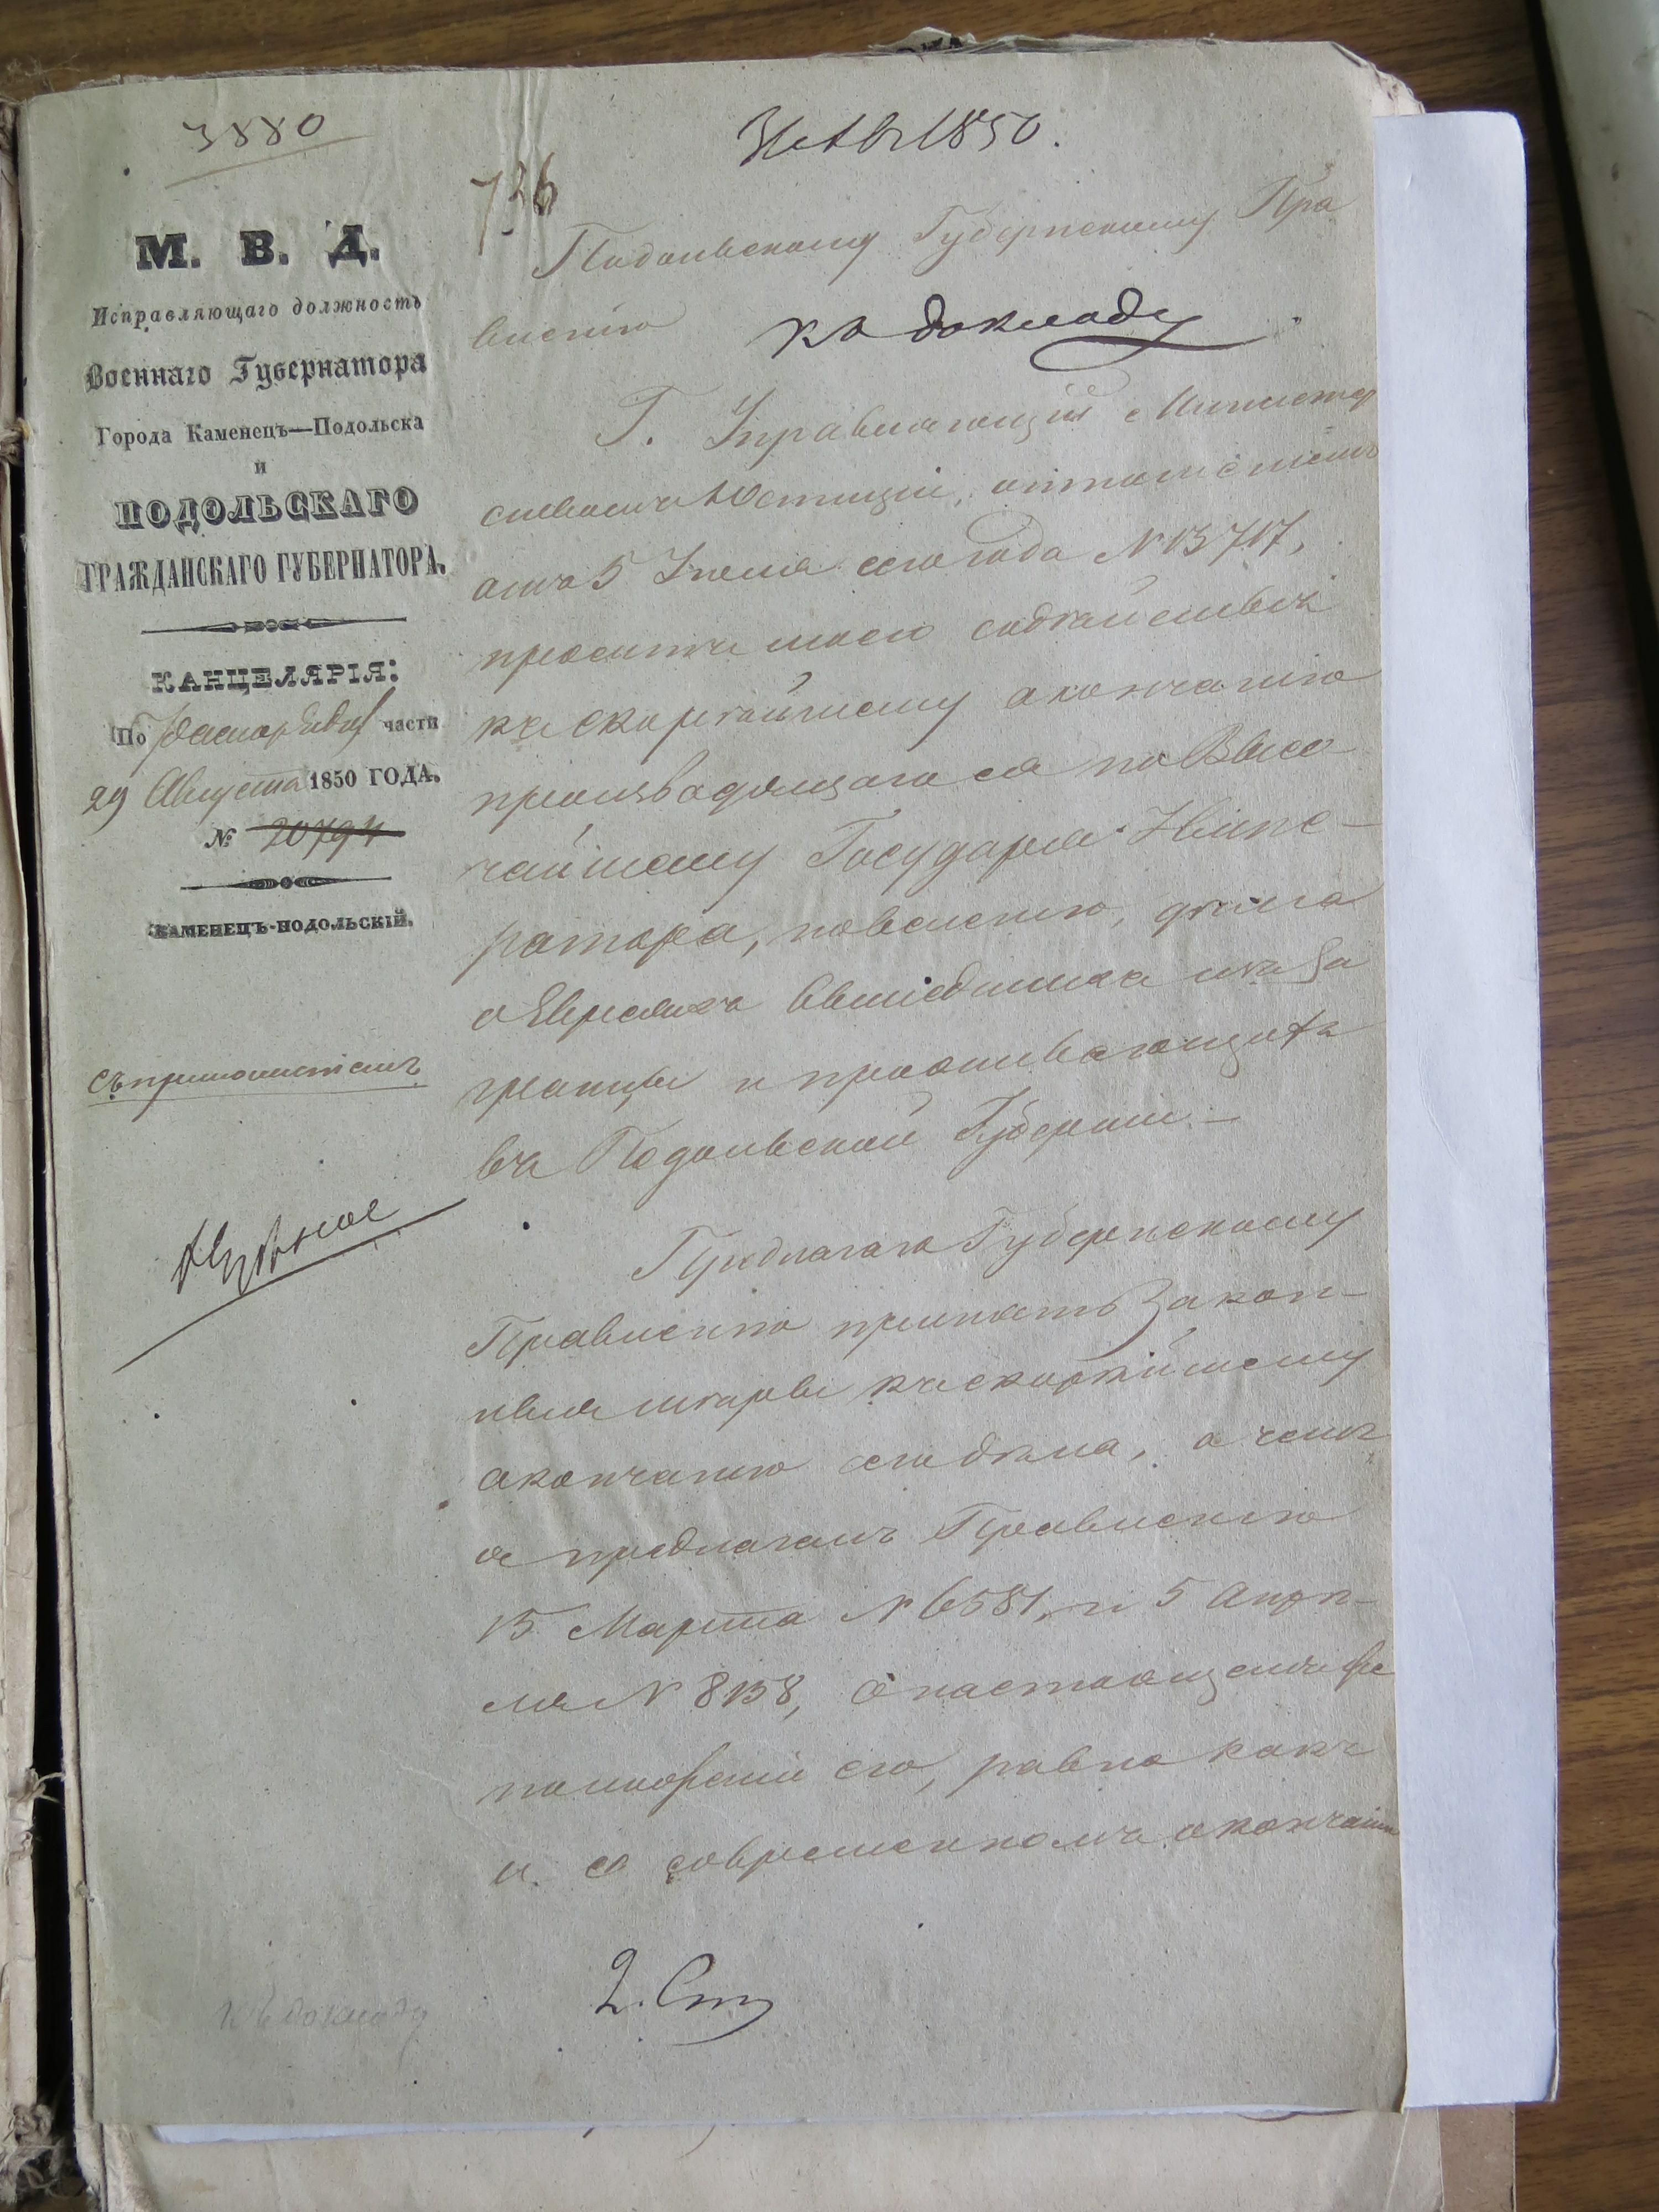 3880
31 Авг 1850.
736
М. В. Д.
Исправляющаго должность
Военнаго Губернатора
Города Каменецъ—Подольска
и
ПОДОЛЬСКАГО
ГРАЖДАНСКАГО ГУБЕРНАТОРА.
КАНЦЕЛЯРІЯ:
По части
29 Августа 1850 ГОДА.
№ 20794
КАМЕНЕЦЪ-ПОДОЛЬСКІЙ.
Съ приложеніемъ
Нужное
Къ докладу
Подольскому Губернскому Пра
вленію
Къ докладу
Г. Управляющій Министер
ствомъ Юстиціи, отношеніемъ
отъ 5 Іюля сего года № 13717,
проситъ моего содѣйствія
къ скорѣйшему окончанію
производящагося по Высо
чайшему Государя Импе-
ратора, повелѣнію, дѣла
о Евреяхъ вышедшихъ изъ за
границы и проживающихъ
въ Подольской Губерніи.—
Предлагаю Губернскому
Правленію принять закон-
ныя мѣры къ скорѣйшему
окончанію сего дѣла, о чемъ
я предлагалъ Правленію
15 Марта № 6581, и 5 Апрѣ-
ля № 8158, о настоящемъ
положеніи его, равно какъ
и о современномъ окончаніи
2. Ст